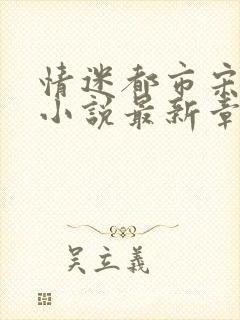 情迷都市宋
小說最新章
吴立義